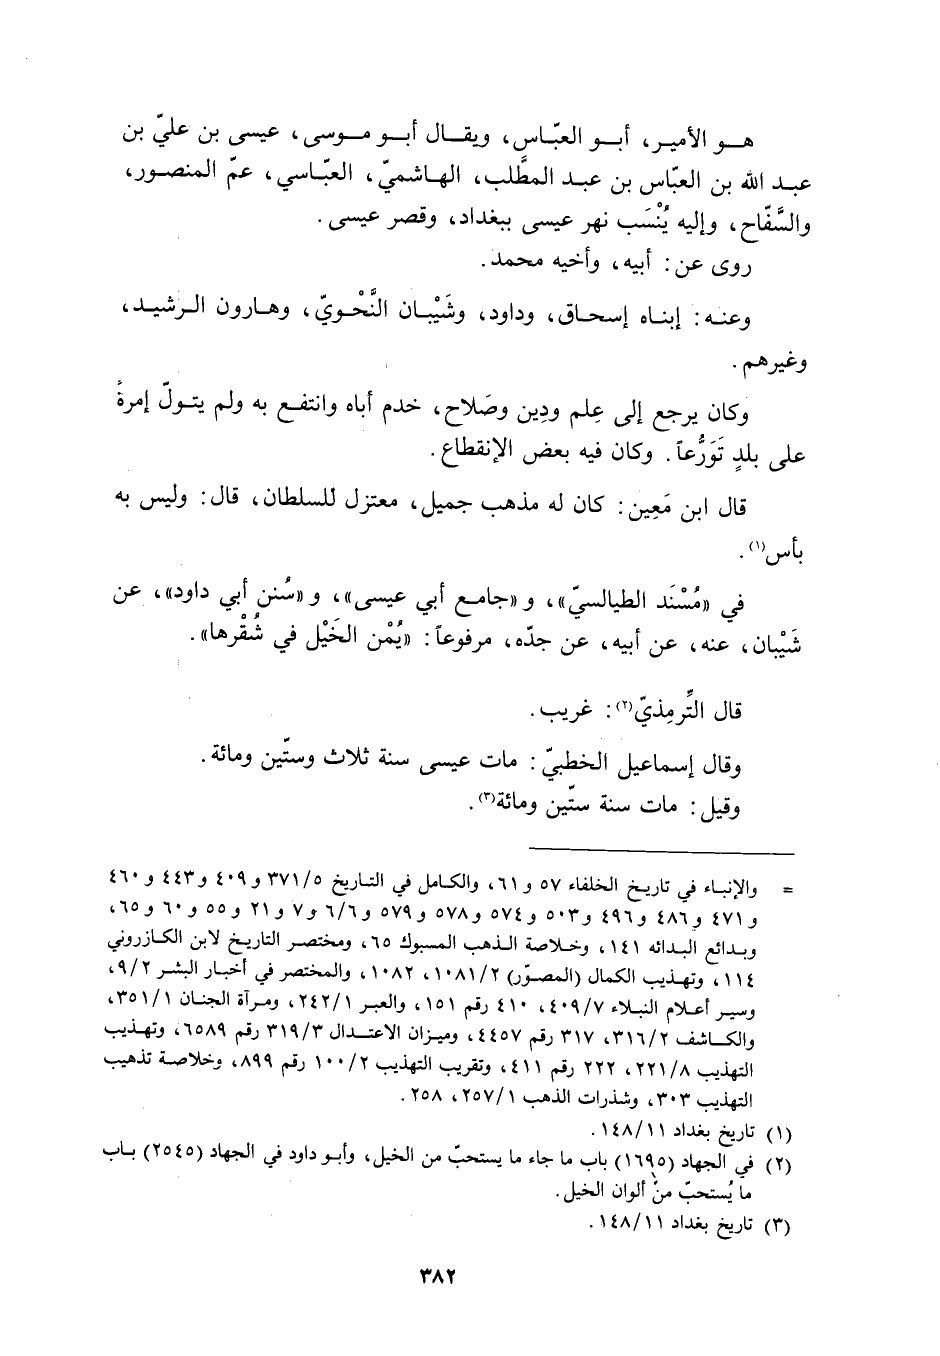 هو الأمير، أبو العبّاس، ويقال أبو موسى، عيسى بن عليّ بن
عبد الله بن العبّاس بن عبد المطَّلب، الهاشميّ، العبّاسي، عمّ المنصور،
والسَّفّاح، وإليه يُنْسَب نهر عيسى ببغداد، وقصر عيسى.
روى عن: أبيه، وأخيه محمد.
وعنه: إبناه إسحاق، وداود، وشَيْبان النَّحْويّ، وهارون الرشيد،
وغيرهم.
وكان يرجع إلى عِلم ودِين وصَلاح، خدم أباه وانتفع به ولم يتولّ إمرةً
على بلدٍ تَوَرُّعاً. وكان فيه بعض الإنقطاع.
قال ابن مَعِين: كان له مذهب جميل، معتزل للسلطان، قال: وليس به
بأس(١).
في «مُسْنَد الطيالسيّ»، و «جامع أبي عيسى»، و «سُنن أبي داود»، عن
شَيْبان، عنه، عن أبيه، عن جدّه، مرفوعاً: «يُمْن الخَيْل في شُقْرها».
قال التِّرمِذيّ(٢): غريب.
وقال إسماعيل الخطبيّ: مات عيسى سنة ثلاث وستّين ومائة.
وقيل: مات سنة ستّين ومائة(٣).
= والإنباء في تاريخ الخلفاء ٥٧ و٦١، والكامل في التاريخ ٣٧١/٥ و٤٠٩ و٤٤٣ و٤٦٠
و٤٧١ و٤٨٦ و٤٩٦ و٥٠٣ و٥٧٤ و٥٧٨ و٥٧٩ و٦/٦ و٧ و٢١ و٥٥ و٦٠ و٦٥،
وبدائع البدائه ١٤١، وخلاصة الذهب المسبوك ٦٥، ومختصر التاريخ لابن الكازروني
١١٤، وتهذيب الكمال (المصوّر) ١٠٨١/٢، ١٠٨٢، والمختصر في أخبار البشر ٩/٢،
وسير أعلام النبلاء ٤٠٩/٧، ٤١٠ رقم ١٥١، والعبر ٢٤٢/١، ومرآة الجنان ٣٥١/١،
والكاشف ٣١٦/٢، ٣١٧ رقم ٤٤٥٧، وميزان الاعتدال ٣١٩/٣ رقم ٦٥٨٩، وتهذيب
التهذيب ٢٢١/٨، ٢٢٢ رقم ٤١١، وتقريب التهذيب ١٠٠/٢ رقم ٨٩٩، وخلاصة تذهيب
التهذيب ٣٠٣، وشذرات الذهب ٢٥٧/١، ٢٥٨.
(١) تاريخ بغداد ١٤٨/١١.
(٢) في الجهاد (١٦٩٥) باب ما جاء ما يستحبّ من الخيل، وأبو داود في الجهاد (٢٥٤٥) باب
ما يُستحبّ من ألوان الخيل.
(٣) تاريخ بغداد ١٤٨/١١.
٣٨٢